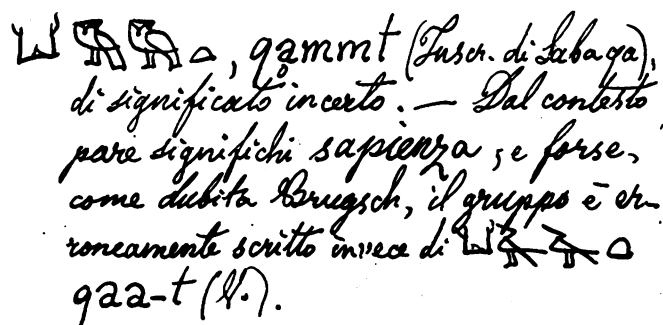 𓂓𓅓𓅓𓏏, qḁmmt (Inscr. di Sabaqa),
di significato incerto. — Dal contesto
pare significhi sapienza, e forse,
come dubita Brugsch, il gruppo è er-
roneamente scritto invece di 𓂓𓄿𓄿𓏏
qaa-t (V.).